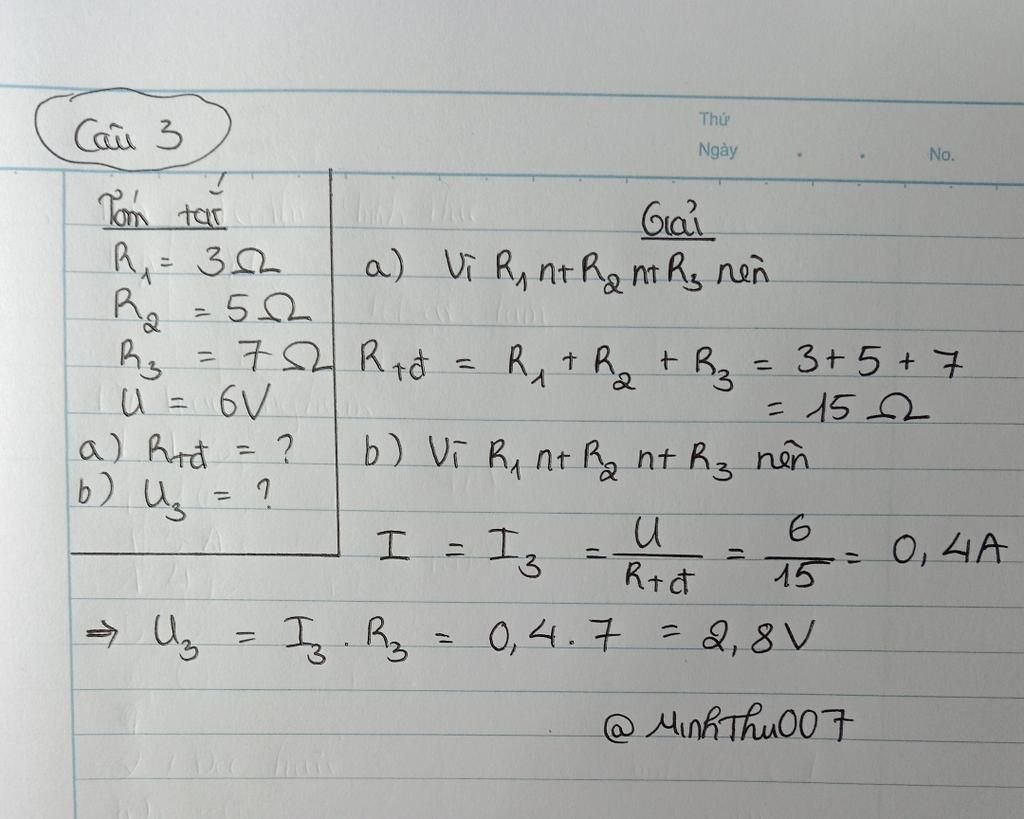 Câu 3
Thứ
Ngày . . No.
Tóm tắt
R₁ = 3Ω
R₂ = 5Ω
R₃ = 7Ω
U = 6V
a) Rtđ = ?
b) U₃ = ?
Giải
a) Vì R₁ nt R₂ nt R₃ nên
Rtđ = R₁ + R₂ + R₃ = 3 + 5 + 7
= 15 Ω
b) Vì R₁ nt R₂ nt R₃ nên
I = I₃ = U/Rtđ = 6/15 = 0,4A
⇒ U₃ = I₃ . R₃ = 0,4 . 7 = 2,8V
@MinhThu007